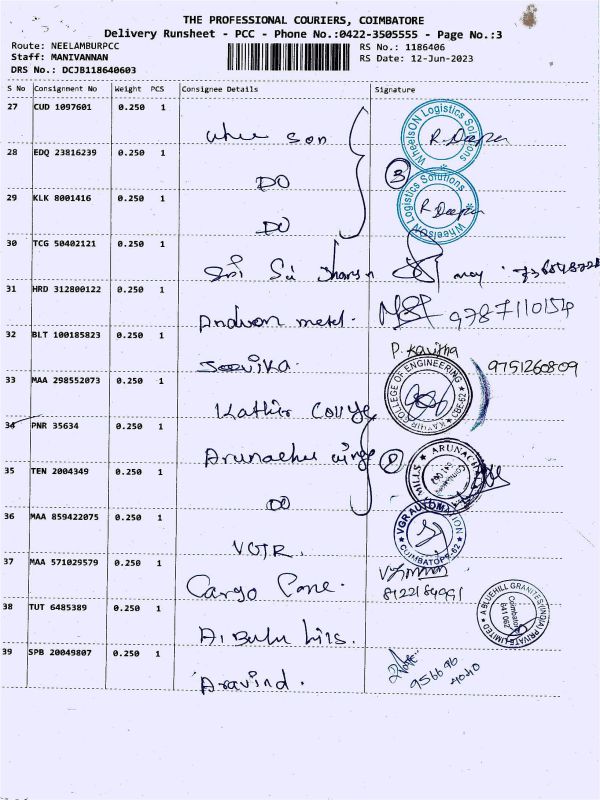 THE PROFESSIONAL COURIERS, COIMBATORE
Delivery Runsheet - PCC - Phone No.:0422-3505555 - Page No.:3
Route: NEELAMBURPCC
RS No.: 1186406
Staff: MANIVANNAN
RS Date: 12-Jun-2023
DRS No.: DCJB118640603
S No Consignment No Weight PCS Consignee Details Signature
27 CUD 1097601 0.250 1
son
WheelsON Logistics Solutions
R. Deepa
28 EDQ 23816239 0.250 1
DO
3
29 KLK 8001416 0.250 1
DO
WheelsON Logistics Solutions
R Deepa
30 TCG 50402121 0.250 1
Sri Sai
31 HRD 312800122 0.250 1
metal.
9787110154
32 BLT 100185823 0.250 1
P. Kavitha
9751260809
33 MAA 298552073 0.250 1
Kathir College
KATHIR COLLEGE OF ENGINEERING
CBE-62
34 PNR 35634 0.250 1
35 TEN 2004349 0.250 1
DO
MILLS ARUNACH
Coimbatore
641 062
36 MAA 859422075 0.250 1
VGR.
VGR AUTOMATION
COIMBATORE-62
37 MAA 571029579 0.250 1
Cargo Pane.
8122184991
38 TUT 6485389 0.250 1
A BLUEHILL GRANITES (INDIA) PRIVATE LIMITED
Coimbatore
641 062
39 SPB 20049807 0.250 1
Aravind.
956696
4040